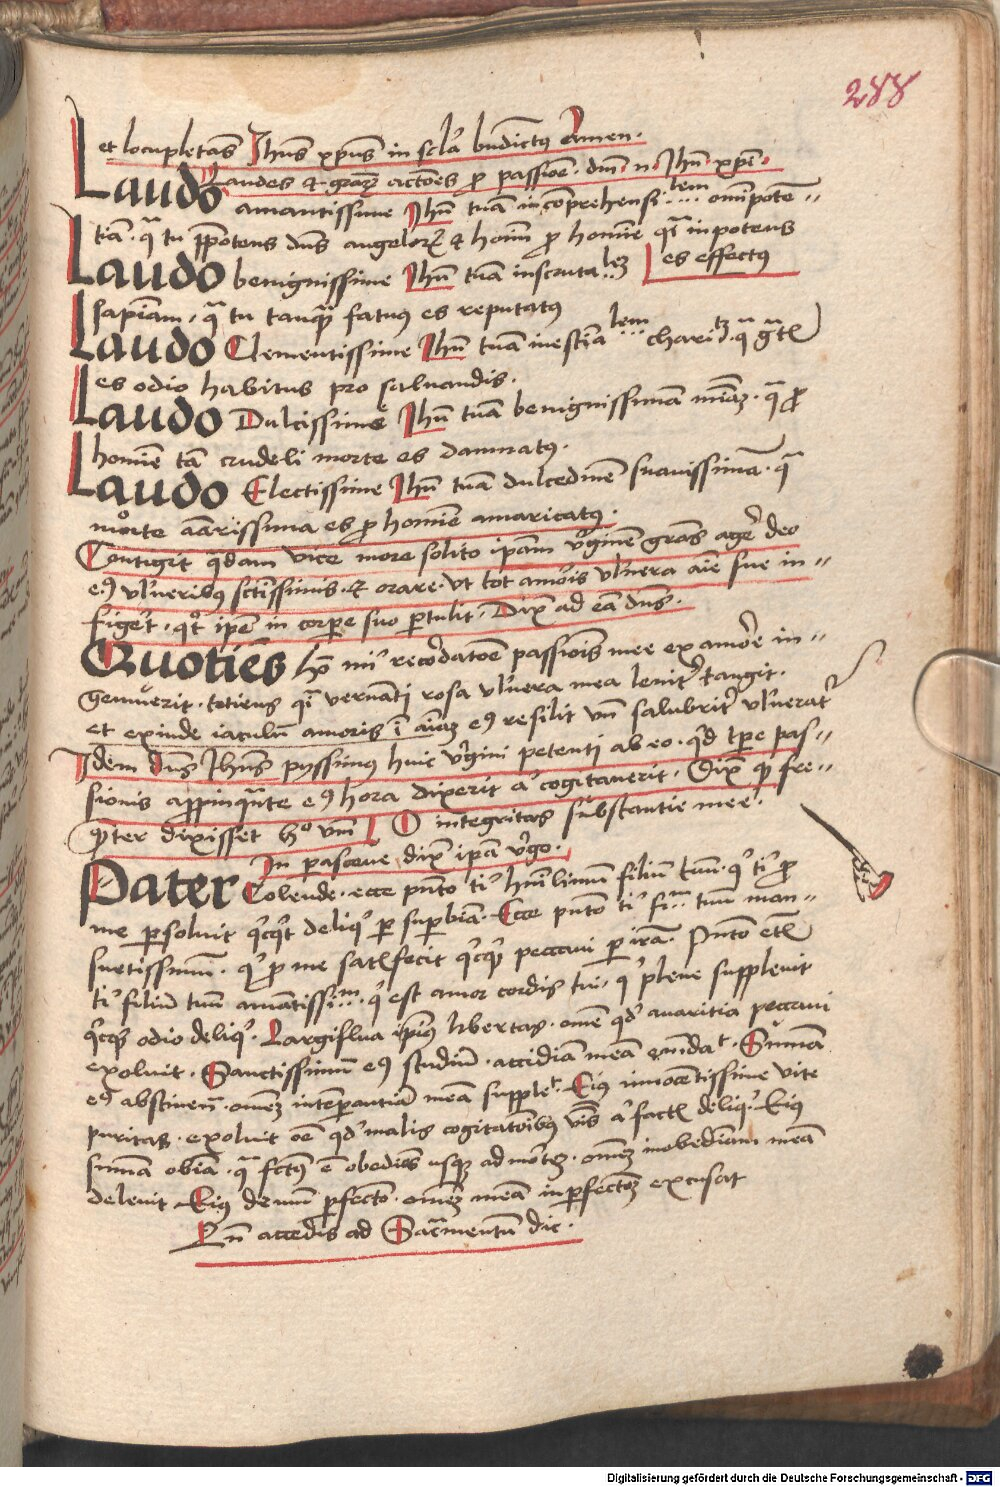 288
et locupletas Jhus xpus in scla bndictus Amen.
Laudes et graz actoes p passioe. dni n. Jhu xpi.
Laudo amantissime Jhu tuã incomprehensi....lem omipote=
tiã. q tu ipotens dns angeloru et hoim p homine q inpotens
es effectus
Laudo benignissime Jhu tuã inscruta..lez
sapiam. q tu tanq fatuus es reputatus
Laudo Clementissime Jhu tuã inestia...lem charitz. q gtis
es odio habitus pro saluandis.
Laudo Dulcissime Jhu tuã benignissimã miaz. q p
homine tã crudeli morte es damnatus.
Laudo Electissime Jhu tuã dulcedinẽ suauissimã. q
morte amarissima es p homine amaricatus.
Contigit qdam vice more solito ipam virginẽ gras agere deo
eius vulneribus sctissimis. et orare. vt tot amoris vulnera aie sue in=
figeret. qt ipe in corpore suo ptulit. Dixit ad eã dns.
Quoties ho mi recordatoe passiois mee ex amore in=
gemuerit. totiens qi vernati rosa vulnera mea leniter tangit.
et exinde iaculu amoris i aiaz eius resilit vn salubriter vulneratr
Idem Dns Jhus pyssimus huic virgini petenti ab eo. qd tpe pas=
sionis appinqnte eius hora dixerit a cogitauerit. Dixit q fre=
quter dixisset ho vnu O integritas substantie mee.
In parasceue dixit ipa virgo.
Pater Colende. ecce pnto ti humilimu filiu tuu. q ti p
me psoluit qcqt deliq p supbiã. Ecce pnto ti fi.. tuu man=
suetissimu. q p me satisfecit qcq peccaui p irã. Pnto etis
ti filiu tuu amatissi...m. q est amor cordis tui. q plene suppleuit
qcq odio deliq. Largiflua ipius libertas. ome qd auaritia peccaui
exoluit. Sanctissimu eius studiu. accidiã meã emdat. Sumã
eius abstinen. omẽ intemperantiã meã supplet. Eius innocetissime vite
puritas. exoluit oe qd malis cogitatoibus vbis a factis deliq. Eius
sumã obiã. q fctus e obediẽs usq ad mortez. omẽ inobediam meã
deleuit. Eius demu pfectio. omẽ meã inpfectoz excusat
Qn accedis ad Sacramentu dic.
Digitalisierung gefördert durch die Deutsche Forschungsgemeinschaft - DFG